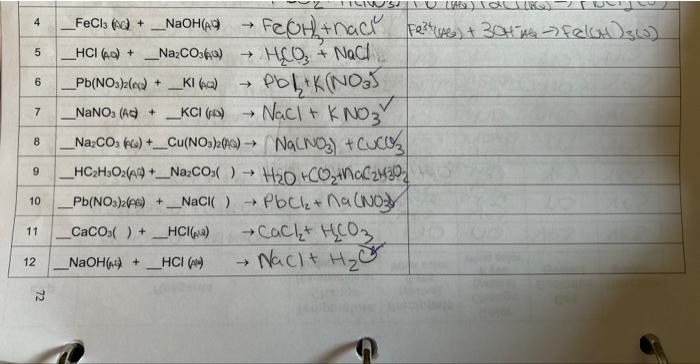 4 __FeCl₃ (AQ) + __NaOH(AQ) → Fe(OH)₃+nacl Fe³⁺(AQ) + 3OH⁻AQ → Fe(OH)₃(s)
5 __HCl (AQ) + __Na₂CO₃(AQ) → H₂CO₃ + NaCl
6 __Pb(NO₃)₂(AQ) + __KI (AQ) → PbI₂+K(NO₃)
7 __NaNO₃ (AQ) + __KCl (AQ) → NaCl + KNO₃
8 __Na₂CO₃ (AQ) +__Cu(NO₃)₂(AQ) → Na(NO₃) + CuCO₃
9 __HC₂H₃O₂(AQ) +__Na₂CO₃( ) → H₂O+CO₂+naC₂H₃O₂
10 __Pb(NO₃)₂(AQ) + __NaCl( ) → PbCl₂ + na(NO₃)
11 __CaCO₃( ) + __HCl(AQ) → CaCl₂+ H₂CO₃
12 __NaOH(AQ) + __HCl (AQ) → NaCl + H₂O
72